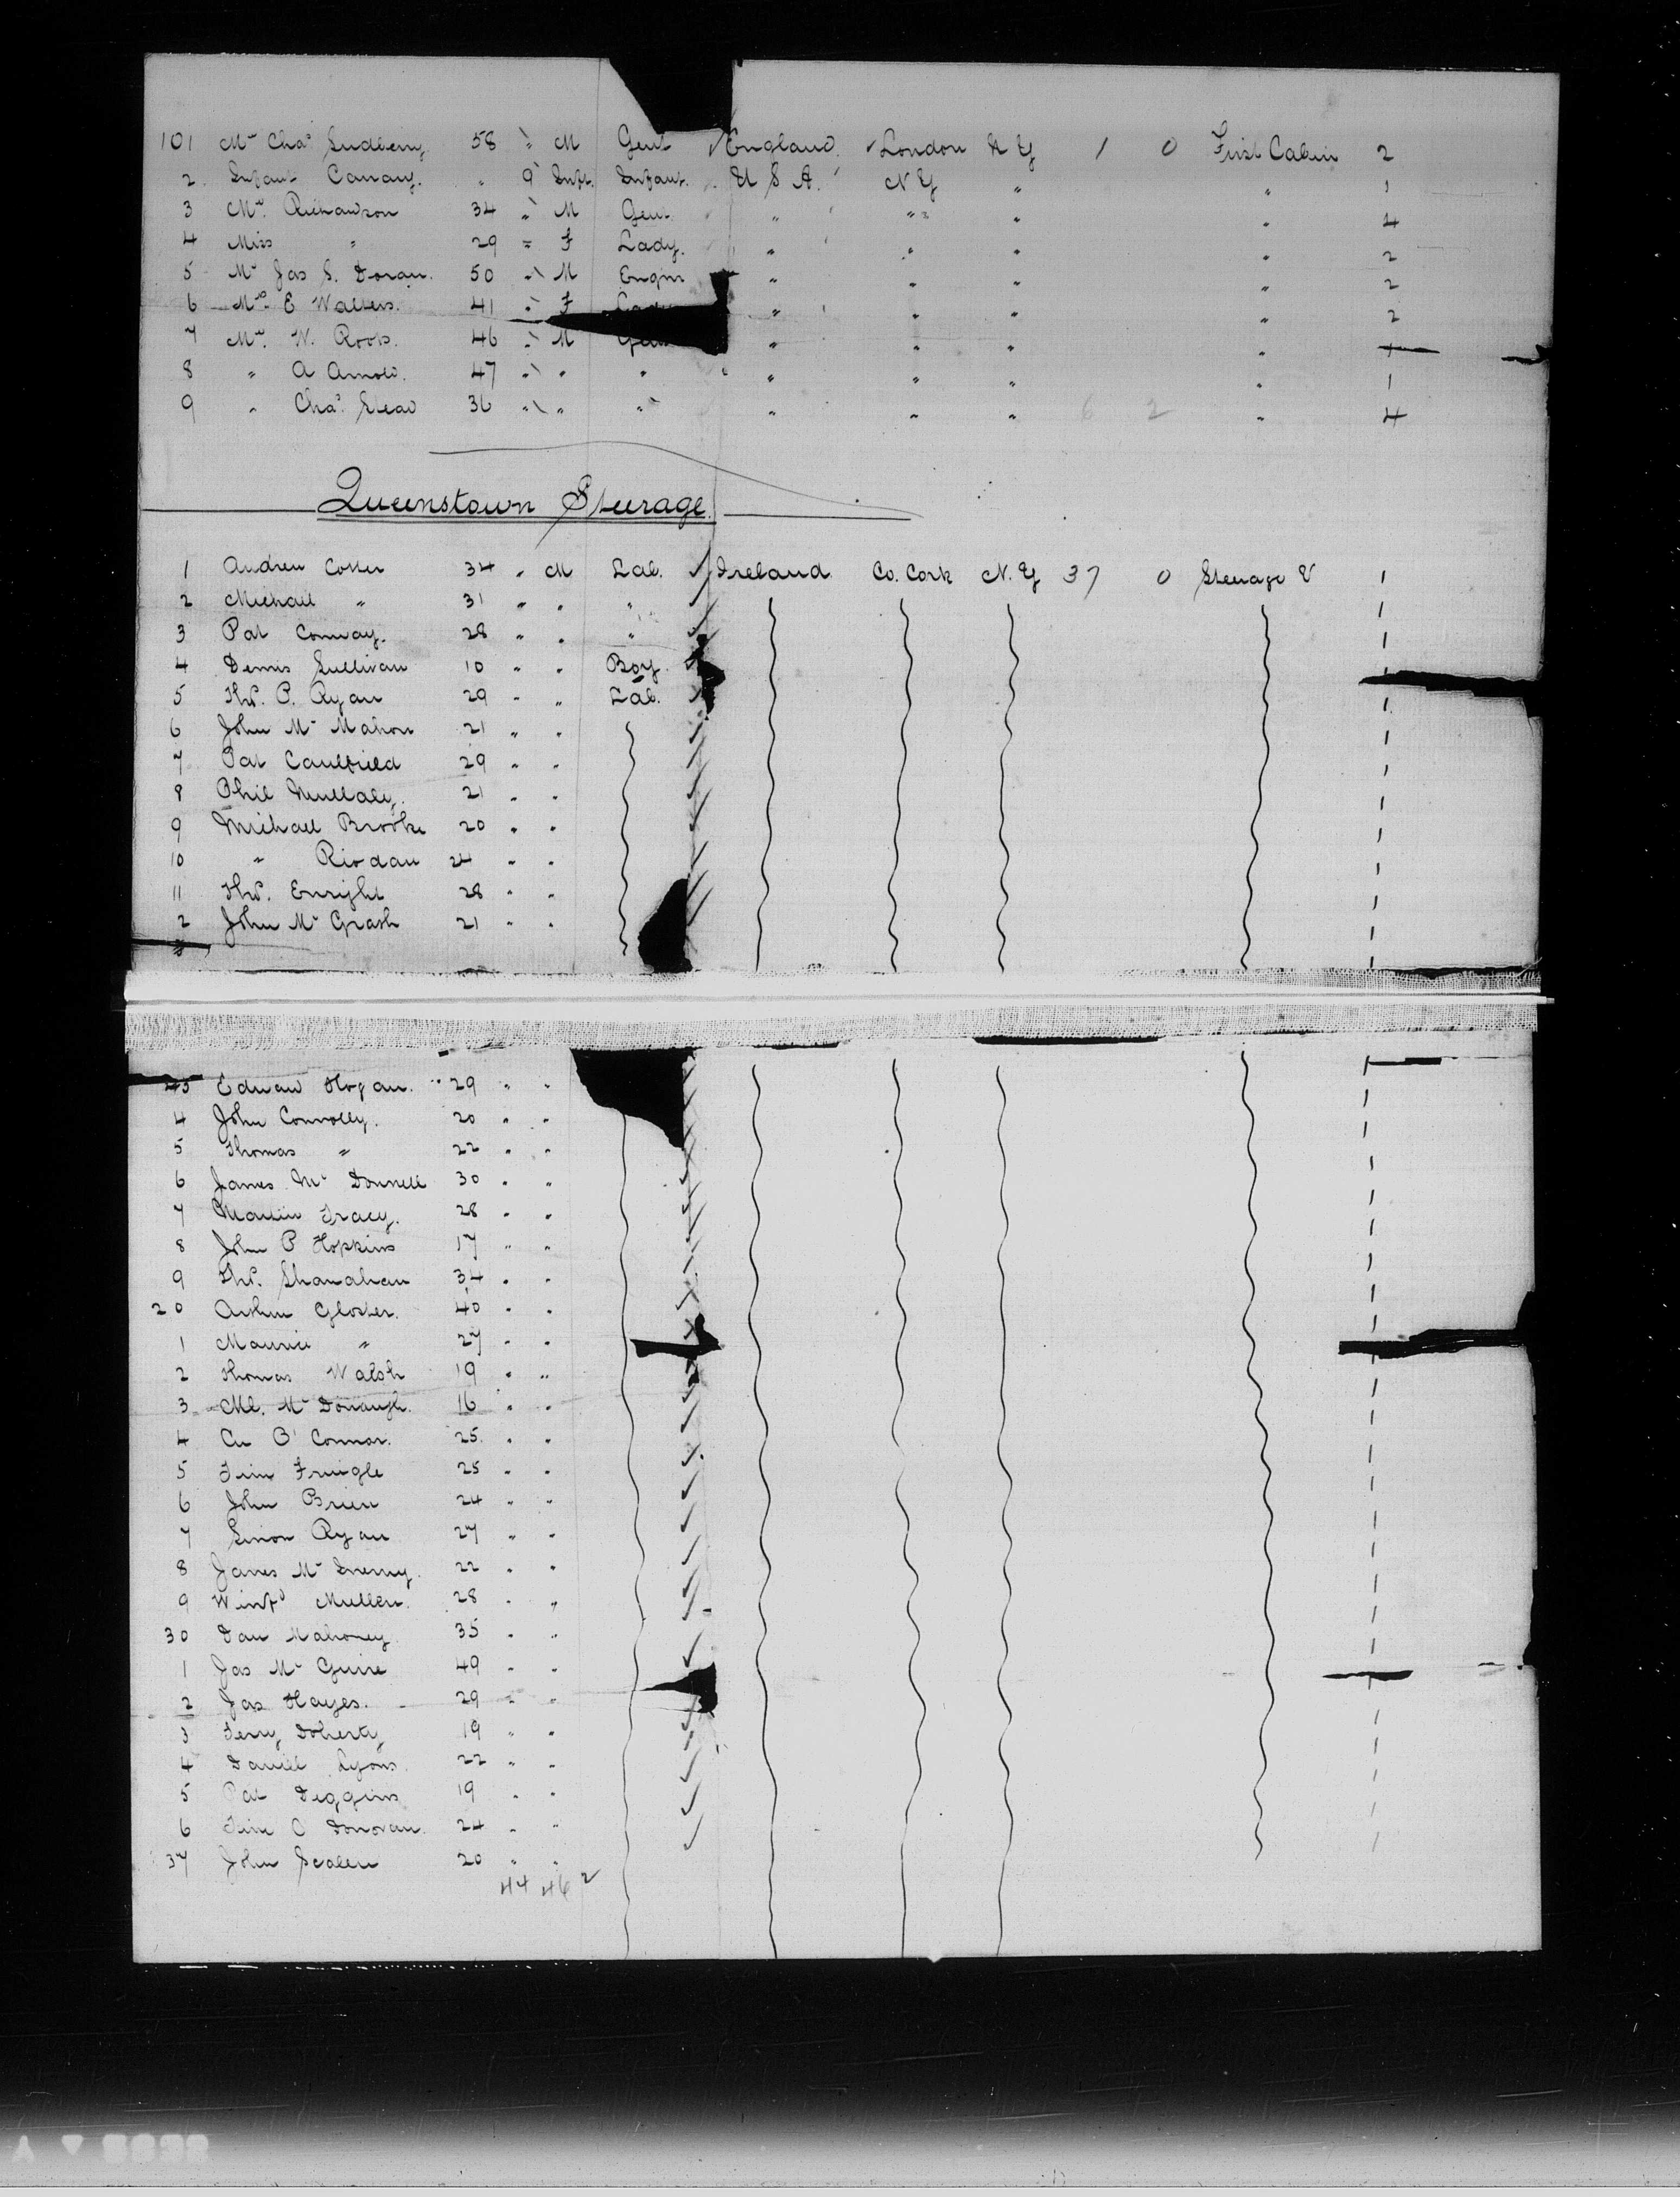 101 Mr Chas Sudberry 58 " M Gent England London N Y 1 0 First Cabin 2
2 Infant Canary. " 9 Inft. Infant. U S A. N Y " " 1
3 Mr. Richardson 34 " M Gent " " " " 4
4 Miss " 29 " F Lady. " " " " 2
5 Mr Jas S. Doran. 50 " M Engin " " " " 2
6 Mrs E Walters. 41 " F " " " " 2
7 Mr. W. Roots. 46 " M " " " "
8 " A Arnold. 47 " " " " " " " 1
9 " Chas. Stead 36 " " " " " " 6 2 " 4
Queenstown Steerage.
1 Andrew Cotter 34 " M Lab. Ireland Co. Cork N. Y 37 0 Steerage 1
2 Michail " 31 " " " 1
3 Pat Conway. 28 " " " 1
4 Dennis Sullivan 10 " " Boy. 1
5 Ths. P. Ryan 29 " " Lab. 1
6 John Mc Mahon 21 " " 1
7 Pat Caulfield 29 " " 1
8 Phil Mullaly. 21 " " 1
9 Michael 20 " " 1
10 " Riodan 24 " " 1
11 Ths. Enright 28 " " 1
2 John Mc Grath 21 " " 1
Edward Hogan. 29 " "
4 John Connolly. 20 " " 1
5 Thomas " 22 " " 1
6 James Mc Donnell 30 " " 1
7 Martin Tracy. 28 " " 1
8 John P Hopkins 17 " " 1
9 Ths. Shanahan 34 " " 1
20 Arthur Gloster. 40 " " 1
1 Maurice " 27 " " 1
2 Thomas Walsh 19 " " 1
3 Ml. Mc Donaugh. 16 " " 1
4 O' Connor. 25 " " 1
5 Tim 25 " " 1
6 John Brien 24 " " 1
7 Simon Ryan 27 " " 1
8 James Mc Inerny. 22 " " 1
9 Mullen. 28 " " 1
30 Dan Mahoney 35 " " 1
1 Jas Mc Guire 49 " " 1
2 Jas Hayes. 29 " " 1
3 Terry Doherty 19 " " 1
4 Daniel Lyons. 22 " " 1
5 Pat Diggins 19 " " 1
6 Tim O Donovan. 24 " " 1
37 John Scalen 20 " "
44 46 2